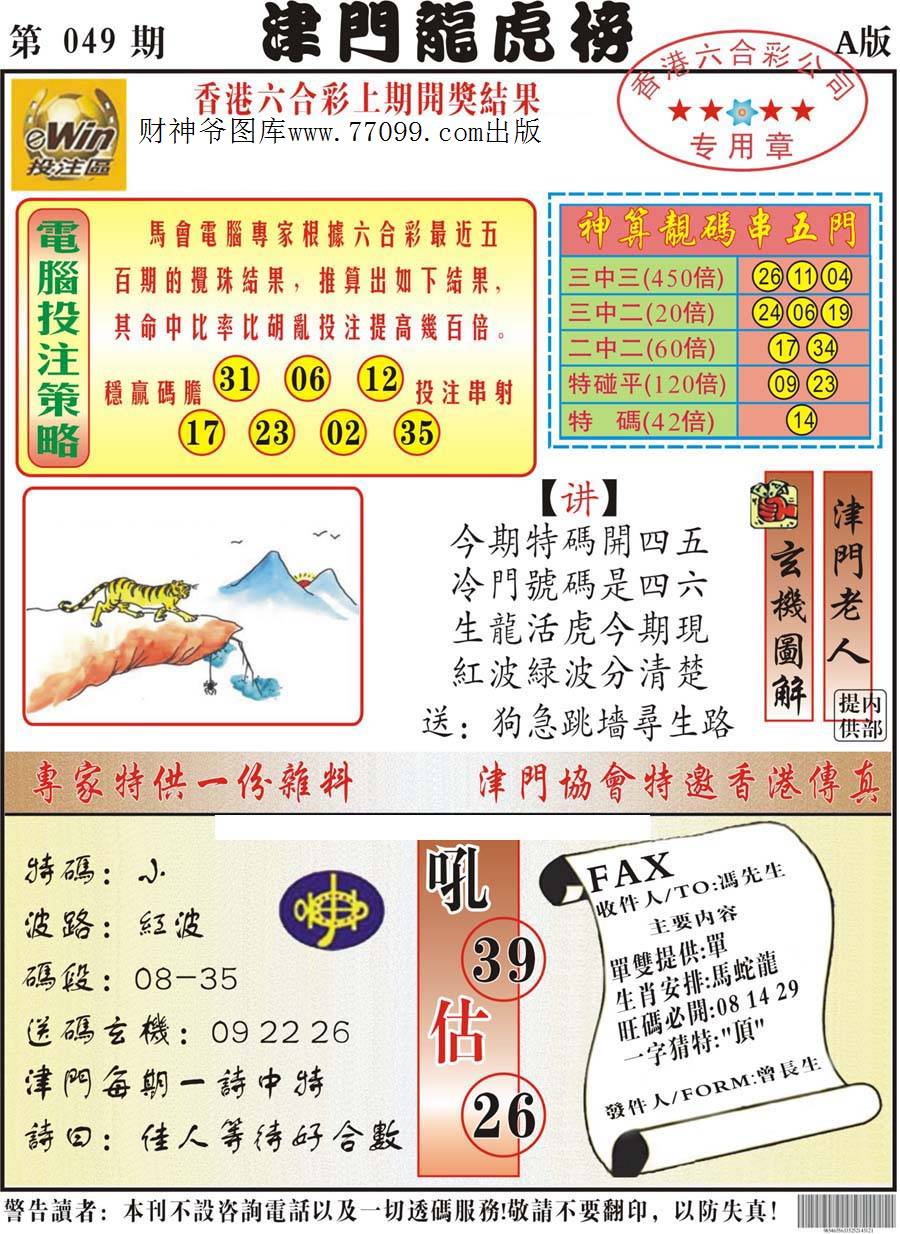 第 049 期
津門龍虎榜
A版
eWin
投注區
香港六合彩上期開獎結果
财神爷图库www.77099.com出版
香港六合彩公司
专用章
電腦投注策略
馬會電腦專家根據六合彩最近五
百期的攪珠結果，推算出如下結果，
其命中比率比胡亂投注提高幾百倍。
穩贏碼膽 31 06 12 投注串射
17 23 02 35
神算靚碼串五門
三中三(450倍) 26 11 04
三中二(20倍) 24 06 19
二中二(60倍) 17 34
特碰平(120倍) 09 23
特 碼(42倍) 14
【讲】
今期特碼開四五
冷門號碼是四六
生龍活虎今期現
紅波緑波分清楚
送：狗急跳墙尋生路
玄機圖解
津門老人
内部提供
專家特供一份雜料
津門協會特邀香港傳真
特碼：小
波路：紅波
碼段：08-35
送碼玄機：09 22 26
津門每期一詩中特
詩曰：佳人等待好合數
吼
39
估
26
FAX
收件人/TO:馮先生
主要内容
單雙提供:單
生肖安排:馬蛇龍
旺碼必開:08 14 29
一字猜特:"頂"
發件人/FORM:曾長生
警告讀者：本刊不設咨詢電話以及一切透碼服務!敬請不要翻印，以防失真！